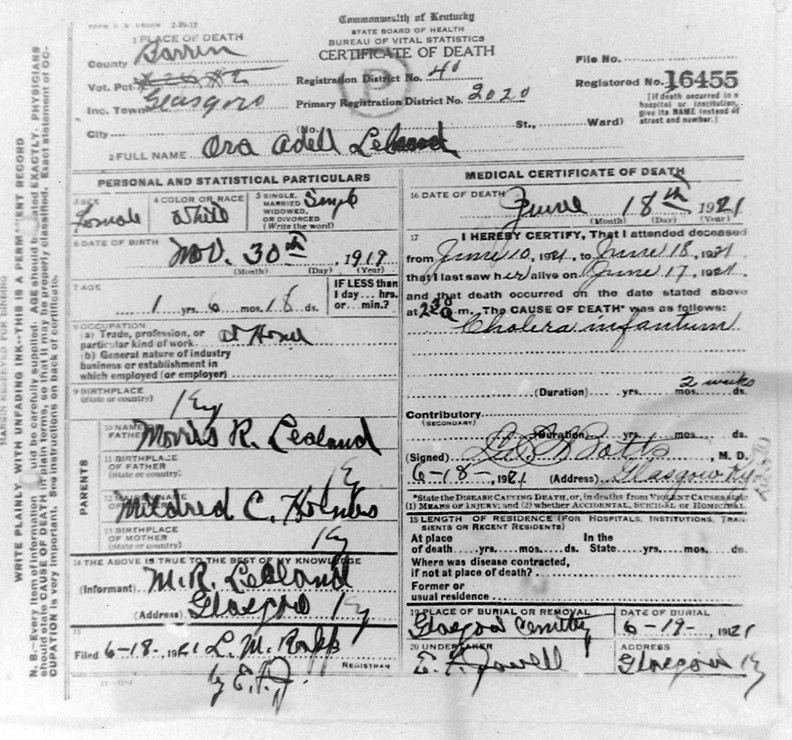 FORM V. S. 2-29-12
Commonwealth of Kentucky
STATE BOARD OF HEALTH
BUREAU OF VITAL STATISTICS
CERTIFICATE OF DEATH
1 PLACE OF DEATH
County Barren
Vot. Pct.
Inc. Town Glasgow
City
(No. St., Ward)
Registration District No. 40
Primary Registration District No. 2020
File No.
Registered No. 16455
[If death occurred in a
hospital or institution,
give its NAME instead of
street and number.]
P
2 FULL NAME Ora Adell
PERSONAL AND STATISTICAL PARTICULARS
3 SEX
Female
4 COLOR OR RACE
White
5 SINGLE,
MARRIED
WIDOWED,
OR DIVORCED
(Write the word)
Single
6 DATE OF BIRTH
Nov. 30th, 1919
(Month) (Day) (Year)
7 AGE
1 yrs. 6 mos. 18 ds.
IF LESS than
1 day... hrs.
or... min.?
8 OCCUPATION
(a) Trade, profession, or
particular kind of work at Home
(b) General nature of industry
business or establishment in
which employed (or employer)
9 BIRTHPLACE
(State or country)
Ky
PARENTS
10 NAME
FATHER
Morris R. Leeland
11 BIRTHPLACE
OF FATHER
(State or country)
Ky
12
Mildred C.
13 BIRTHPLACE
OF MOTHER
(State or country)
Ky
14 THE ABOVE IS TRUE TO THE BEST OF MY KNOWLEDGE
(Informant) M. R. Leeland
(Address) Glasgow Ky
15
Filed 6-18-, 1921 L. M.
REGISTRAR
by
MEDICAL CERTIFICATE OF DEATH
16 DATE OF DEATH
June 18th 1921
(Month) (Day) (Year)
17 I HEREBY CERTIFY, That I attended deceased
from June 10, 1921, to June 18, 1921
that I last saw her alive on June 17, 1921
and that death occurred on the date stated above
at m. The CAUSE OF DEATH* was as follows:
Cholera infantum
2 weeks
(Duration) yrs. mos. ds.
Contributory
(SECONDARY)
(Duration) yrs. mos. ds.
(Signed) Botts, M. D.
6-18-, 1921 (Address) Glasgow Ky
*State the DISEASE CAUSING DEATH, or, in deaths from VIOLENT CAUSES state
(1) MEANS OF INJURY; and (2) whether ACCIDENTAL, SUICIDAL or HOMICIDAL
18 LENGTH OF RESIDENCE (FOR HOSPITALS, INSTITUTIONS, TRAN-
SIENTS OR RECENT RESIDENTS)
At place In the
of death yrs. mos. ds. State yrs. mos. ds.
Where was disease contracted,
if not at place of death?
Former or
usual residence
19 PLACE OF BURIAL OR REMOVAL
Glasgow Cemetery
DATE OF BURIAL
6-19-, 1921
20 UNDERTAKER
E. F. Jewell
ADDRESS
Glasgow Ky
MARGIN RESERVED FOR BINDING
WRITE PLAINLY WITH UNFADING INK--THIS IS A PERMANENT RECORD
N. B.--Every item of information should be carefully supplied. AGE should be stated EXACTLY. PHYSICIANS
should state CAUSE OF DEATH in plain terms, so that it may be properly classified. Exact statement of OC-
CUPATION is very important. See instructions on back of certificate.